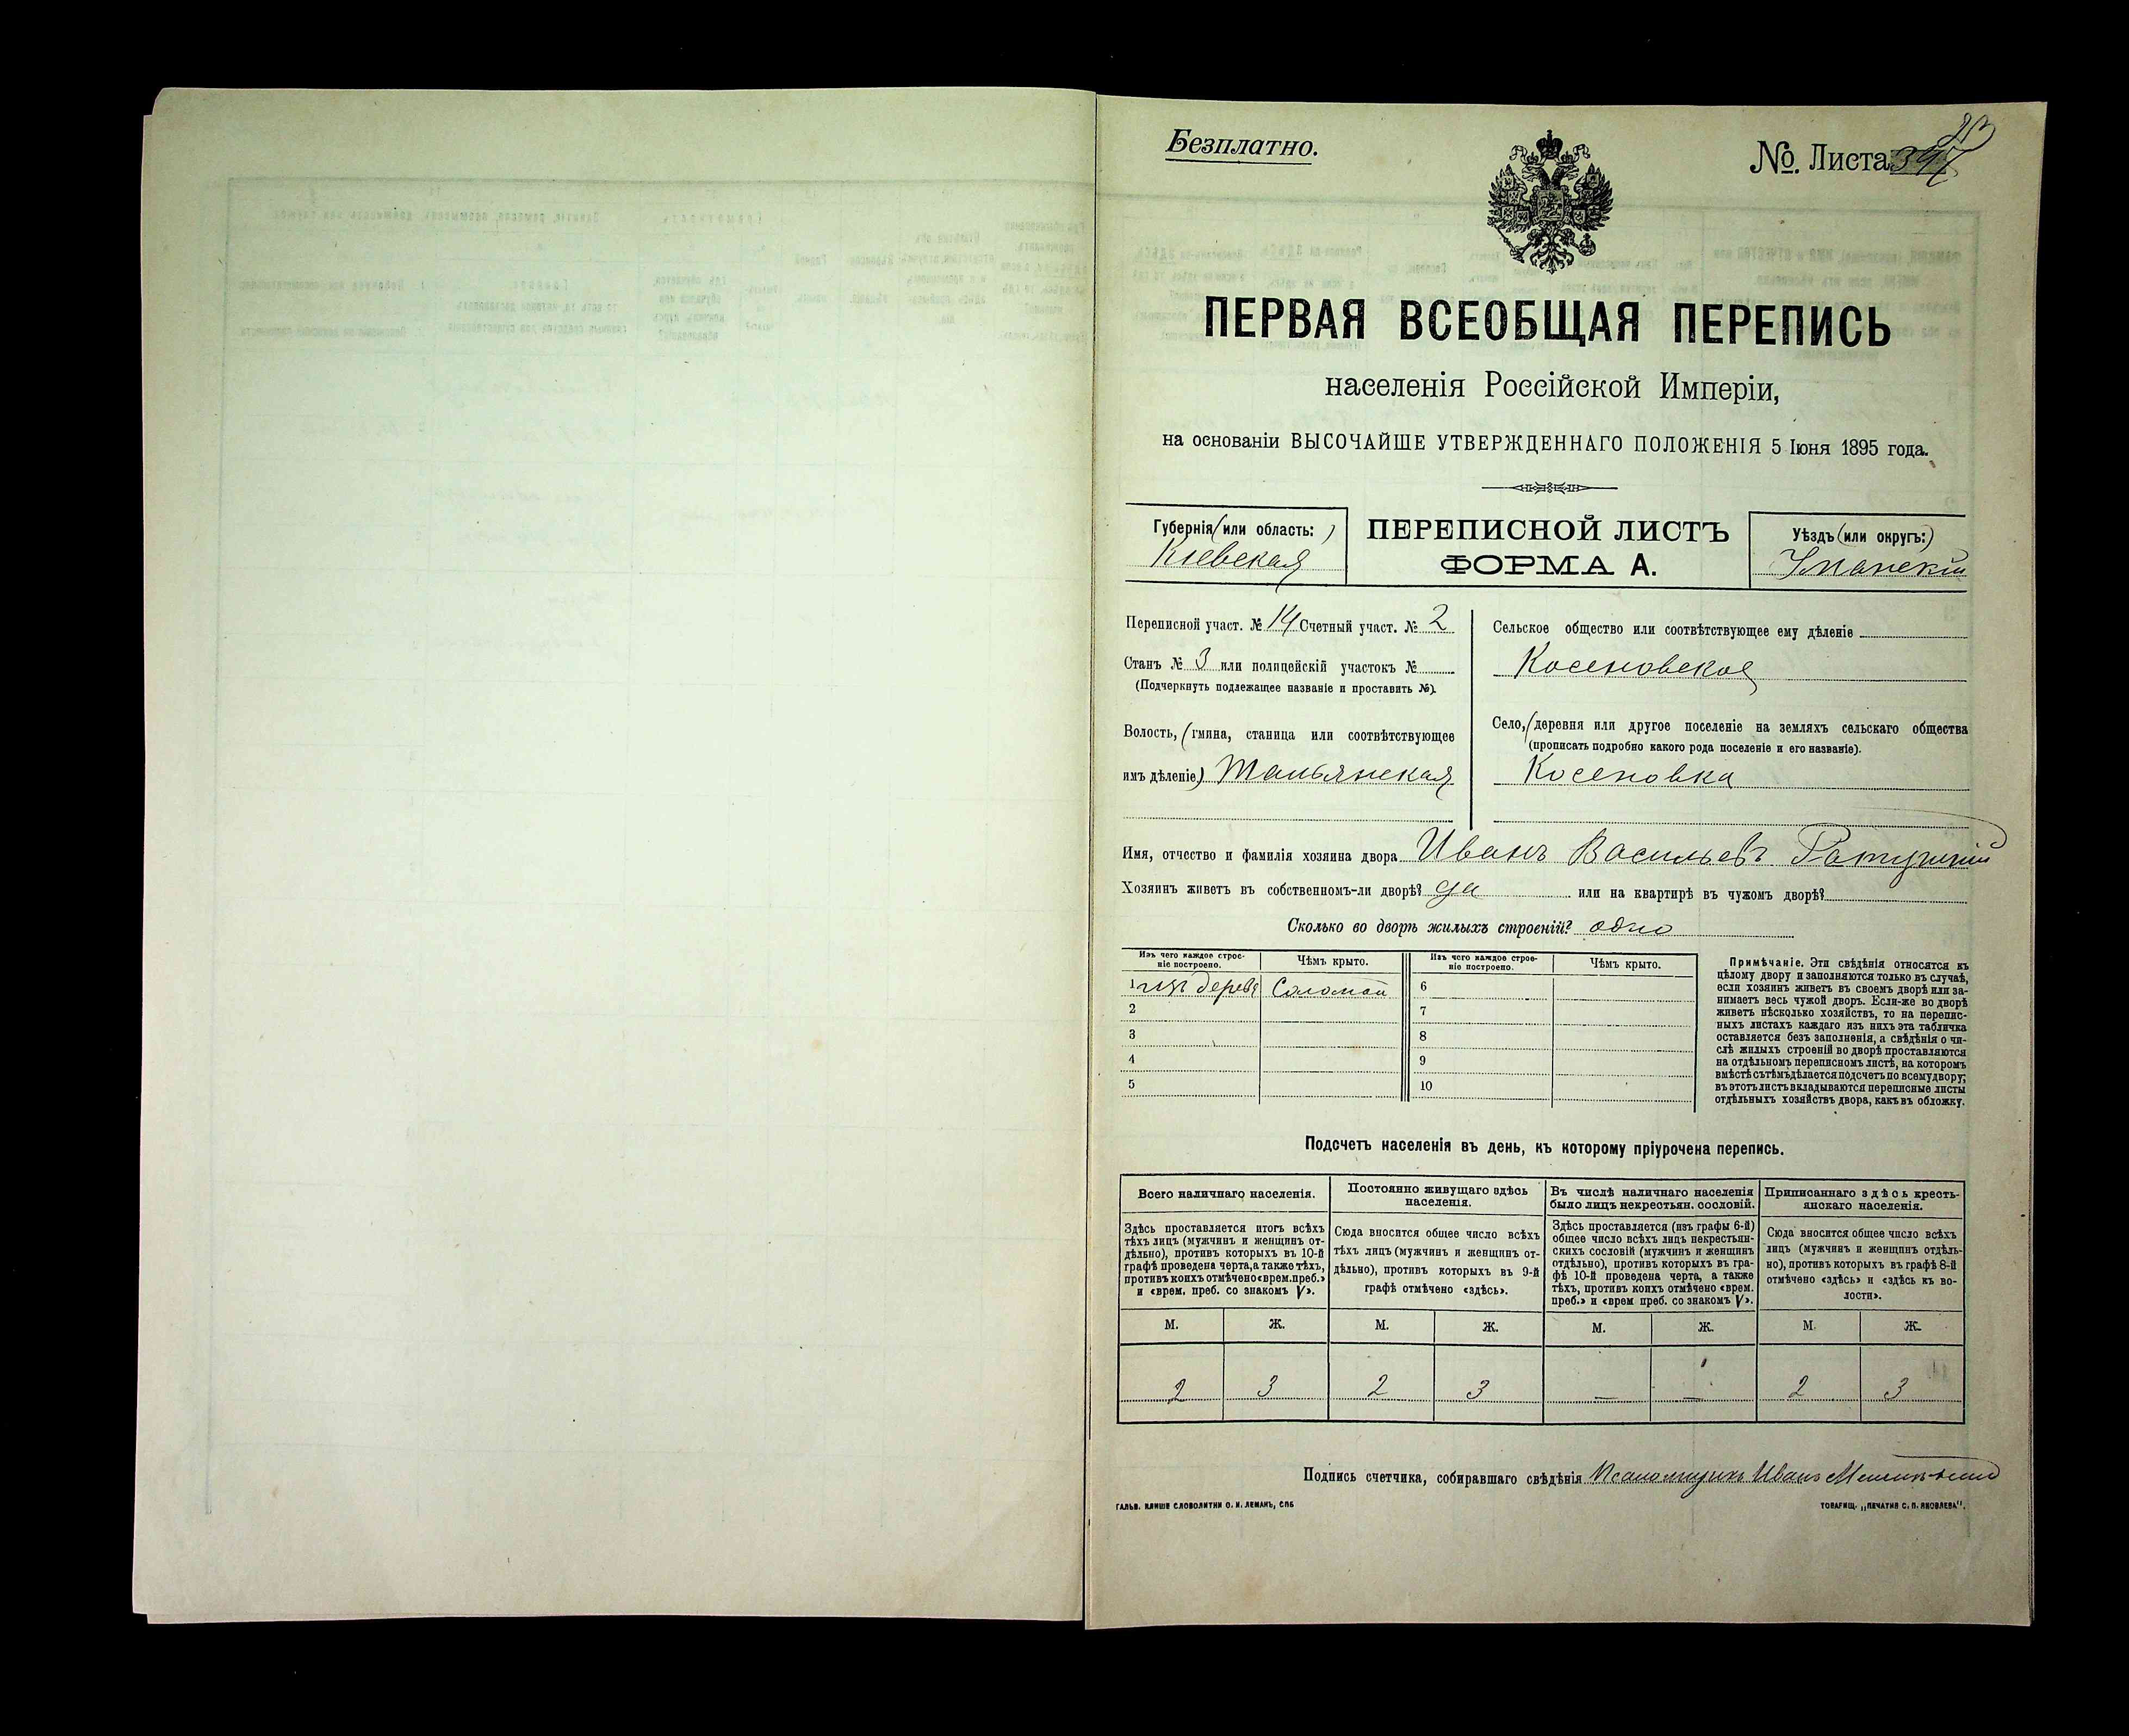 Безплатно.
№ Листа 397
ПЕРВАЯ ВСЕОБЩАЯ ПЕРЕПИСЬ
населенія Россійской Имперіи,
на основаніи ВЫСОЧАЙШЕ УТВЕРЖДЕННАГО ПОЛОЖЕНІЯ 5 Іюня 1895 года.
Губернія (или область:)
Кіевская
ПЕРЕПИСНОЙ ЛИСТЪ
ФОРМА А.
Уѣздъ (или округъ:)
Уманскій
Переписной участ. № 14 Счетный участ. № 2
Станъ № 3 или полицейскій участокъ №
(Подчеркнуть подлежащее названіе и проставить №).
Волость, (гмина, станица или соотвѣтствующее
имъ дѣленіе) Тальянская
Сельское общество или соотвѣтствующее ему дѣленіе
Косеновское
Село, (деревня или другое поселеніе на земляхъ сельскаго общества
(прописать подробно какого рода поселеніе и его названіе).
Косеновка
Имя, отчество и фамилія хозяина двора Иванъ Васильевъ
Хозяинъ живетъ въ собственномъ-ли дворѣ? да или на квартирѣ въ чужомъ дворѣ?
Сколько во дворѣ жилыхъ строеній? одно
Изъ чего каждое строе-
ніе построено.
Чѣмъ крыто.
Изъ чего каждое строе-
ніе построено.
Чѣмъ крыто.
1 изъ дерева Соломой 6
2 7
3 8
4 9
5 10
Примѣчаніе. Эти свѣдѣнія относятся къ
цѣлому двору и заполняются только въ случаѣ,
если хозяинъ живетъ въ своемъ дворѣ или за-
нимаетъ весь чужой дворъ. Если-же во дворѣ
живетъ нѣсколько хозяйствъ, то на перепис-
ныхъ листахъ каждаго изъ нихъ эта табличка
оставляется безъ заполненія, а свѣдѣнія о чи-
слѣ жилыхъ строеній во дворѣ проставляются
на отдѣльномъ переписномъ листѣ, на которомъ
вмѣстѣ съ тѣмъ дѣлается подсчетъ по всему двору;
въ этотъ листъ вкладываются переписные листы
отдѣльныхъ хозяйствъ двора, какъ въ обложку.
Подсчетъ населенія въ день, къ которому пріурочена перепись.
Всего наличнаго населенія.
Здѣсь проставляется итогъ всѣхъ
тѣхъ лицъ (мужчинъ и женщинъ от-
дѣльно), противъ которыхъ въ 10-й
графѣ проведена черта, а также тѣхъ,
противъ коихъ отмѣчено «врем. преб.»
и «врем. преб. со знакомъ V».
Постоянно живущаго здѣсь
населенія.
Сюда вносится общее число всѣхъ
тѣхъ лицъ (мужчинъ и женщинъ от-
дѣльно), противъ которыхъ въ 9-й
графѣ отмѣчено «здѣсь».
Въ числѣ наличнаго населенія
было лицъ некрестьян. сословій.
Здѣсь проставляется (изъ графы 6-й)
общее число всѣхъ лицъ некрестьян-
скихъ сословій (мужчинъ и женщинъ
отдѣльно), противъ которыхъ въ гра-
фѣ 10-й проведена черта, а также
тѣхъ, противъ коихъ отмѣчено «врем.
преб.» и «врем преб. со знакомъ V».
Приписаннаго здѣсь кресть-
янскаго населенія.
Сюда вносится общее число всѣхъ
лицъ (мужчинъ и женщинъ отдѣль-
но), противъ которыхъ въ графѣ 8-й
отмѣчено «здѣсь» и «здѣсь къ во-
лости».
М. Ж. М. Ж. М. Ж. М. Ж.
2 3 2 3 — — 2 3
Подпись счетчика, собиравшаго свѣдѣнія Псаломщикъ Иванъ
ГАЛЬВ. КЛИШЕ СЛОВОЛИТНИ О. И. ЛЕМАНЪ, СПБ
ТОВАРИЩ. „ПЕЧАТНЯ С. П. ЯКОВЛЕВА".